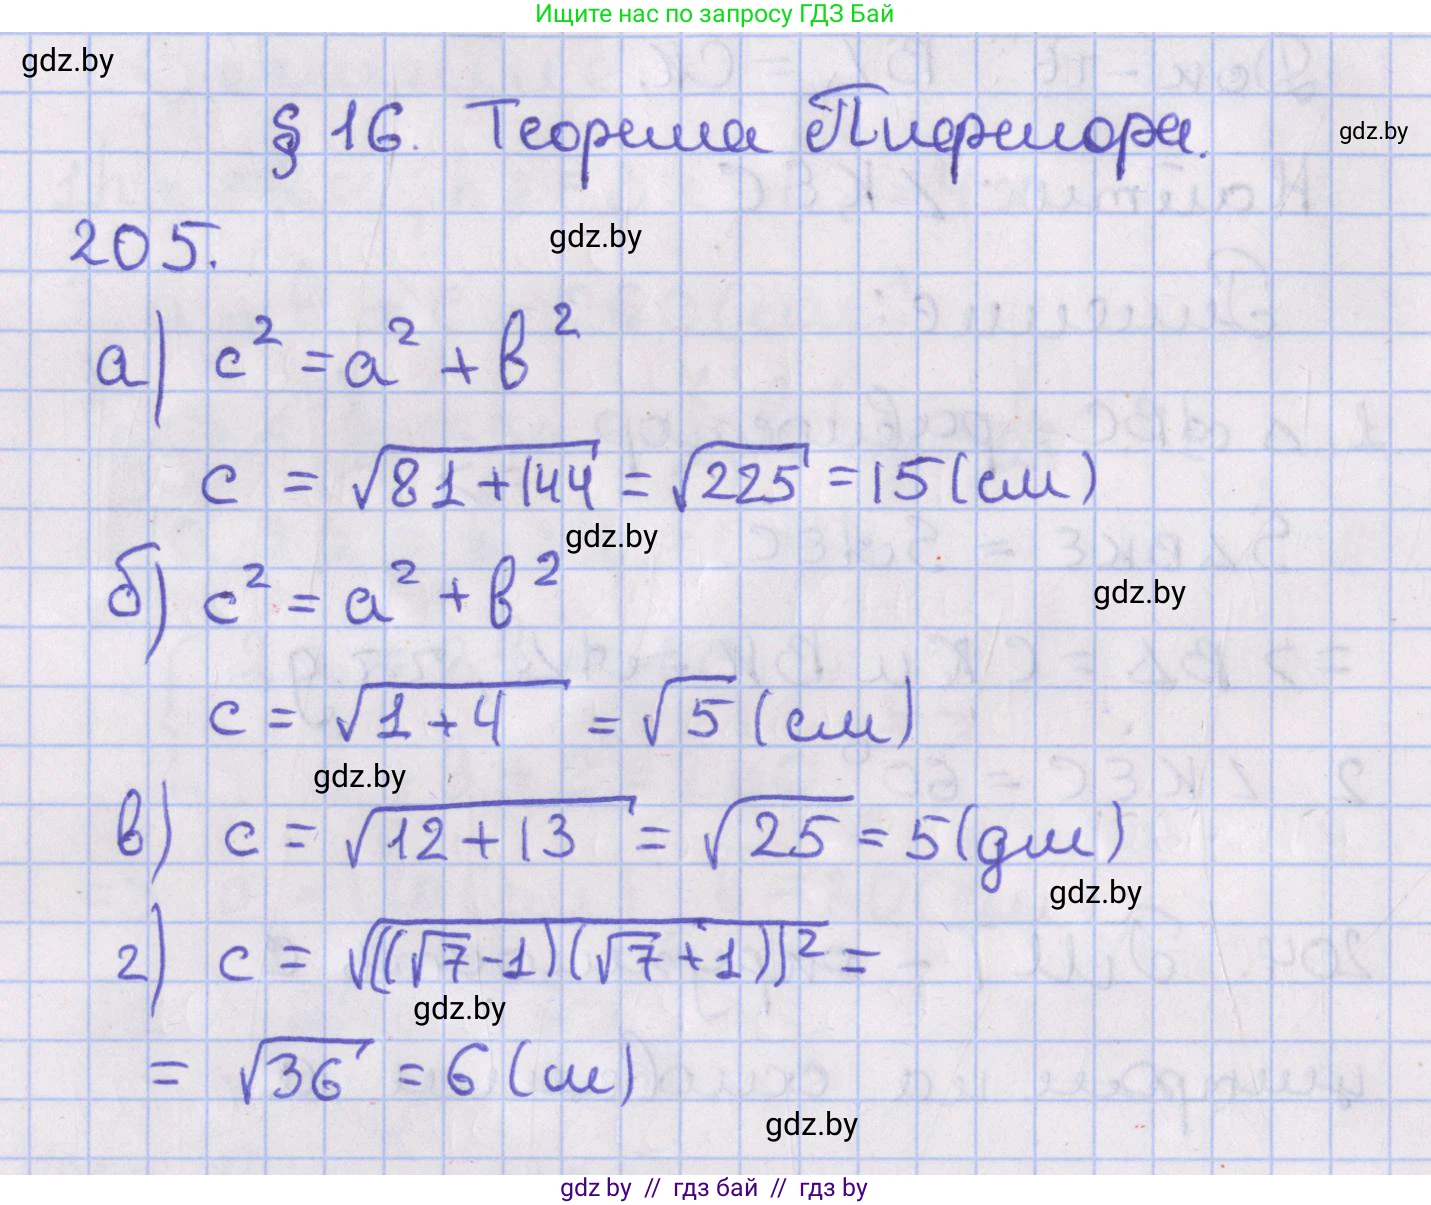 Ищите нас по запросу ГДЗ Бай
gdz.by
§ 16. Теорема Пифмора.
gdz.by
205.
gdz.by
а) c² = a² + b²
c = √(81+144) = √225 = 15 (см)
gdz.by
б) c² = a² + b²
gdz.by
c = √(1+4) = √5 (см)
gdz.by
в) c = √(12+13) = √25 = 5 (дм)
gdz.by
г) c = √[(√7-1)(√7+1)]² =
gdz.by
= √36 = 6 (см)
gdz.by
gdz by // гдз бай // гдз by